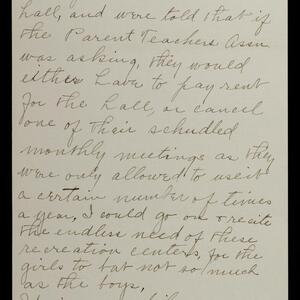 hall, and were told that if
the Parent Teachers Assn
was asking, they would
either have to pay rent
for the hall, or cancel
one of their schudled
monthly meetings as they
were only allowed to use it
a certain number of times
a year, I could go on & recite
the endless need of these
recreation centers, for the
girls to but not so much
as the boys,